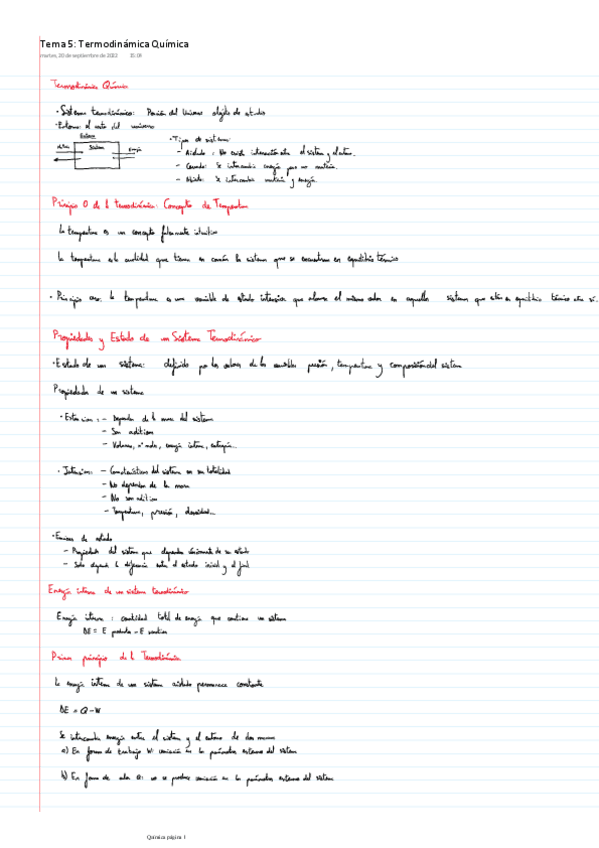 Tema 5: Termodinámica Química
martes, 20 de septiembre de 2022 15:04
Termodinámica Química
· Sistema termodinámico: Porción del Universo objeto de estudio
· Entorno: el resto del universo
Entorno
Sistema
Energía
· Tipos de sistema:
- Aislado: No existe interacción entre el sistema y el entorno.
- Cerrado: Se intercambia energía pero no materia.
- Abierto: Se intercambia materia y energía.
Principio 0 de la termodinámica: Concepto de Temperatura
La temperatura es un concepto falsamente intuitivo
La temperatura es la cualidad que tienen en común los sistemas que se encuentran en equilibrio térmico
· Principio cero: la temperatura es una variable de estado intensiva que alcanza el mismo valor en aquellos sistemas que están en equilibrio térmico entre sí.
Propiedades y Estado de un Sistema Termodinámico
· Estado de un sistema: definido por los valores de las variables presión, temperatura y composición del sistema
Propiedades de un sistema
· Extensivas: - Dependen de la masa del sistema
- Son aditivas
- Volumen, nº moles, energía interna, entropía...
· Intensivas: - Características del sistema en su totalidad
- No dependen de la masa
- No son aditivas
- Temperatura, presión, densidad...
de estado
- Propiedades del sistema que dependen únicamente de su estado
- Solo depende la diferencia entre el estado inicial y el final
Energía interna de un sistema termodinámico
Energía interna: cantidad total de energía que contiene un sistema
ΔE = E productos - E reactivos
Primer principio de la Termodinámica
La energía interna de un sistema aislado permanece constante
ΔE = Q - W
Se intercambia energía entre el sistema y el entorno de dos maneras
a) En forma de trabajo W: variación en los parámetros externos del sistema
b) En forma de calor Q: no se produce variación en los parámetros externos del sistema
Química página 1